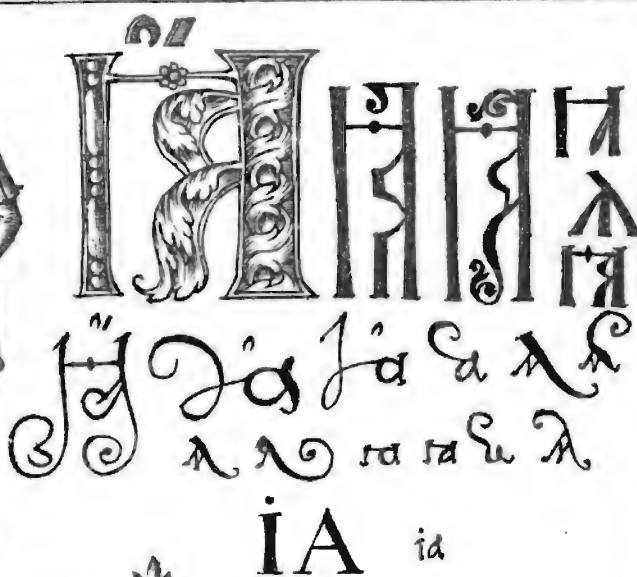 Ꙗ҆́ Ꙗ Ꙗ Ꙗ
Ѧ
Ꙗ
Ꙗ҆ ꙗ҆ ꙗ҆ ꙗ ѧ ѧ
ѧ ѧ ꙗ ꙗ ꙗ ѧ
ІА іа